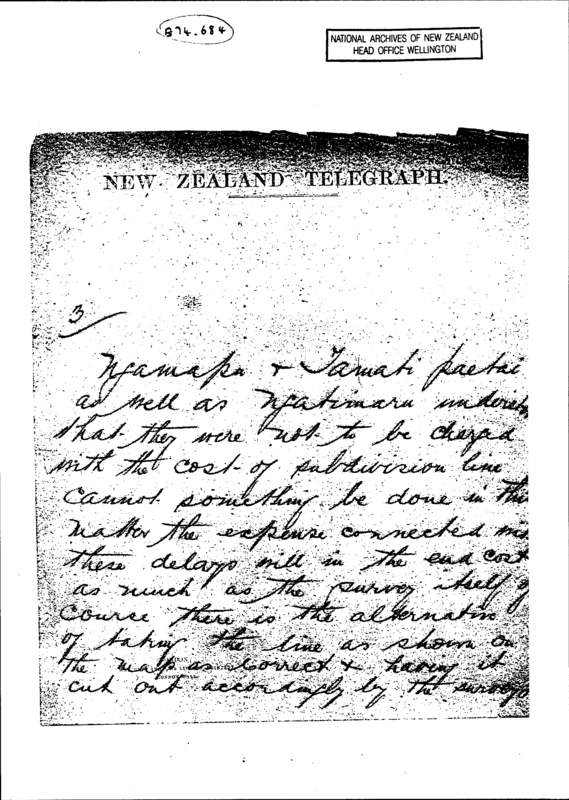 B74.684
NATIONAL ARCHIVES OF NEW ZEALAND
HEAD OFFICE WELLINGTON
NEW ZEALAND TELEGRAPH.
3/
Ngamapu & Tamati paetai
as well as Ngatimaru
that they were not to be chargd
with the cost of subdivision line
Cannot something be done in this
matter the expense connected
these delays will in the end cost
as much as the survey itself of
course there is the alternative
of taking the line as shown on
the map as correct & having it
cut out accordingly by the